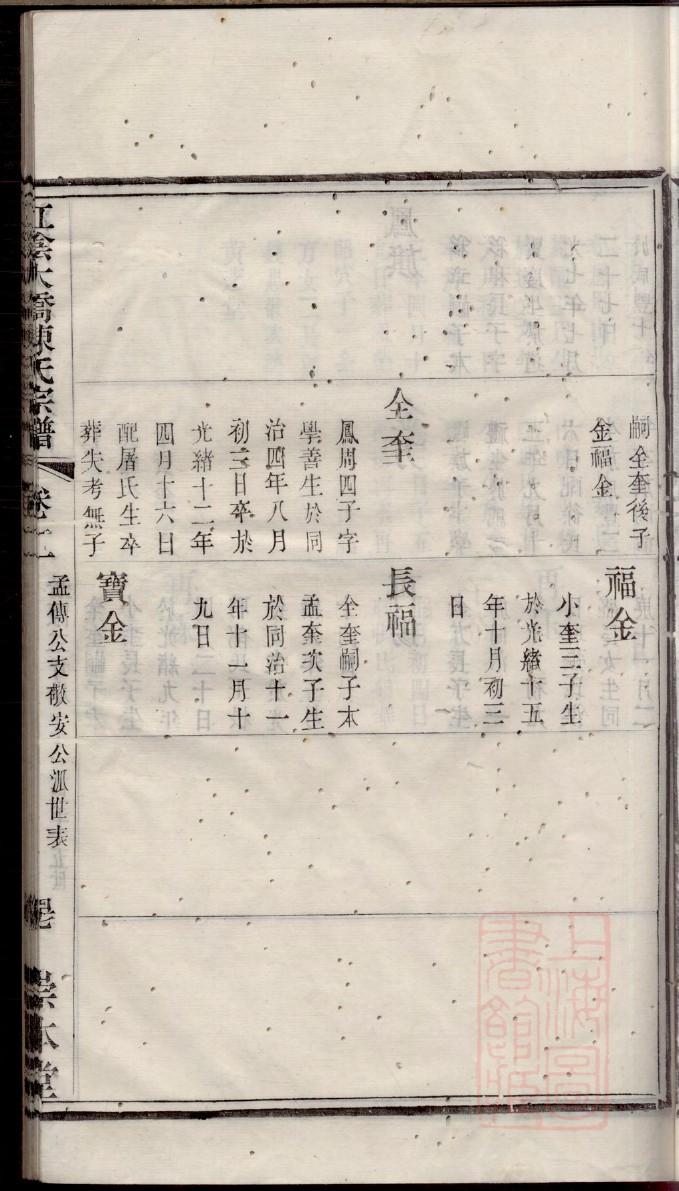 嗣全奎後子
金福金
全奎
鳳周四子字
學善生於同
治四年八月
初三日卒於
光緒十二年
四月十六日
配屠氏生卒
葬失考無子
福金
小奎三子生
於光緒十五
年十月初三
日
長福
全奎嗣子本
孟奎次子生
於同治十一
年十一月十
九日
寶金
江陰大橋陳氏宗譜
孟傳公支敬安公派世表
崇本堂
上海圖書館藏